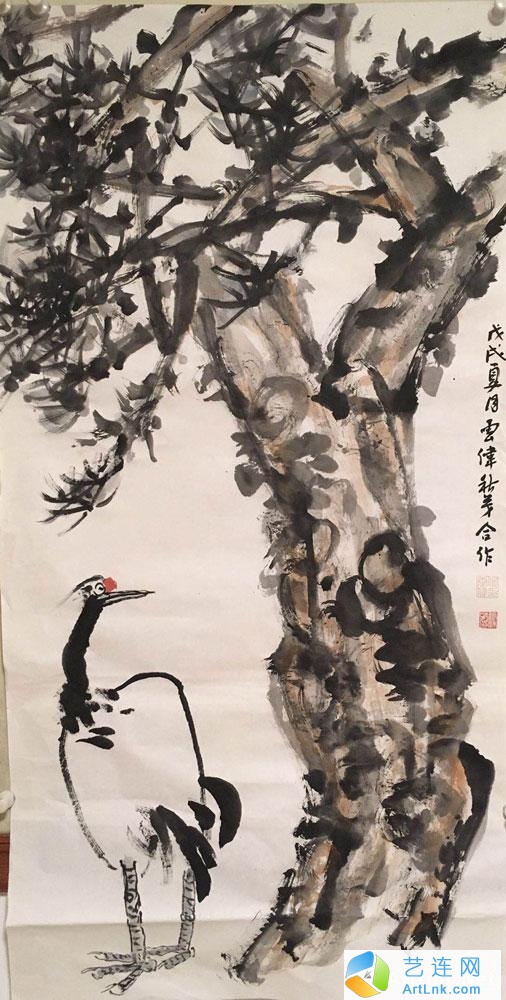 戊戌夏月雲偉秋苹合作
艺连网
ArtLnk.com